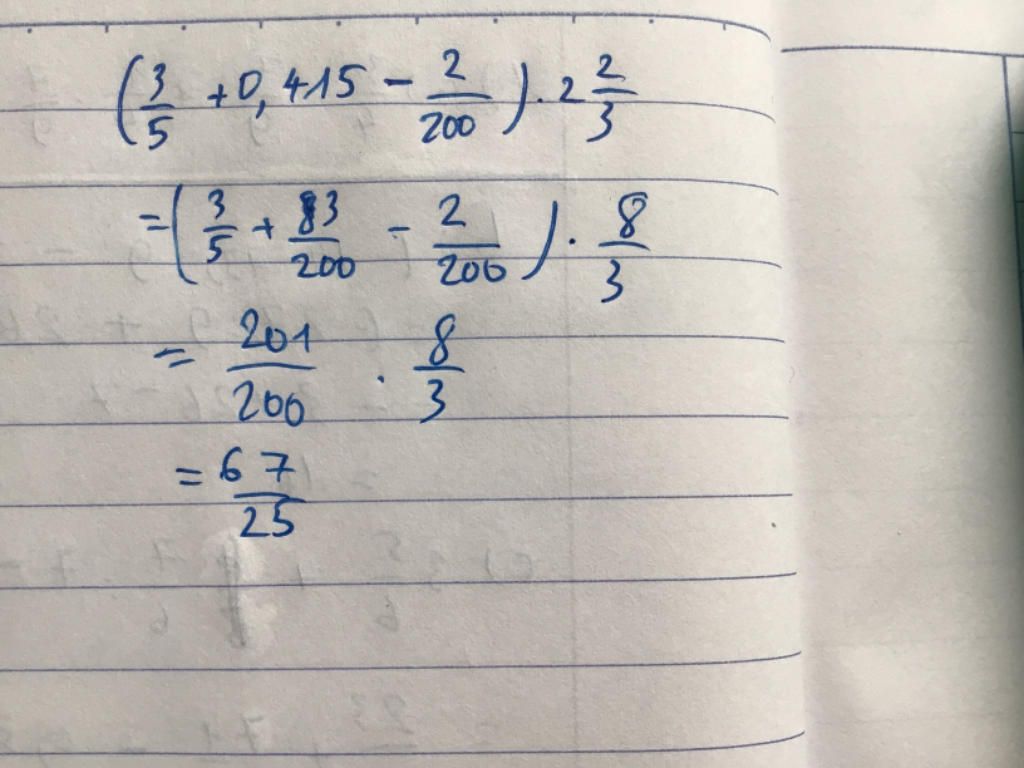 (3/5 + 0,415 - 2/200) . 2 2/3
= (3/5 + 83/200 - 2/200) . 8/3
= 201/200 . 8/3
= 67/25